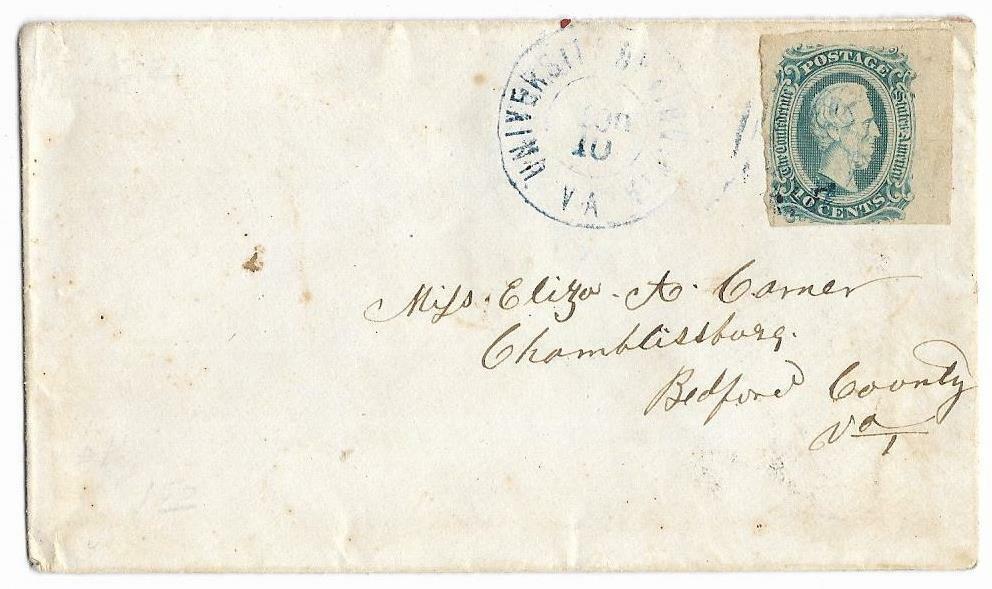 UNIVERSITY OF VIRGINIA
VA
10
POSTAGE
The Confederate States America
10 CENTS
Miss. Eliza. A. Carner
Chamblissburg.
Bedford County
Va
150